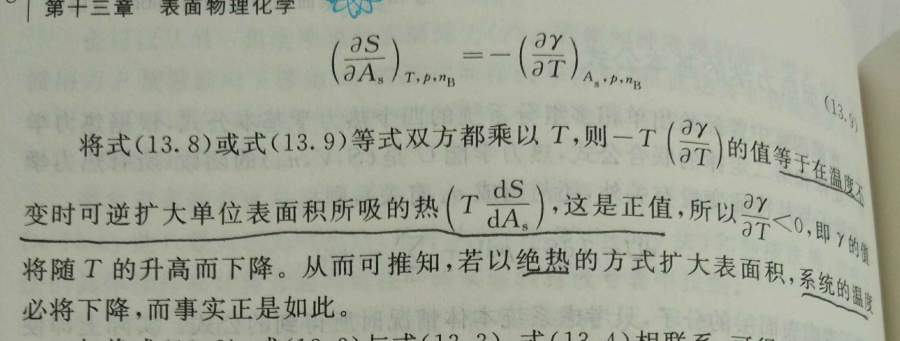 第十三章 表面物理化学
(∂S/∂Aₛ)_{T,p,n_B} = −(∂γ/∂T)_{Aₛ,p,n_B}
(13.9)
将式(13.8)或式(13.9)等式双方都乘以 T,则−T(∂γ/∂T)的值等于在温度不
变时可逆扩大单位表面积所吸的热(T dS/dAₛ),这是正值,所以∂γ/∂T<0,即 γ 的值
将随 T 的升高而下降。从而可推知,若以绝热的方式扩大表面积,系统的温度
必将下降,而事实正是如此。